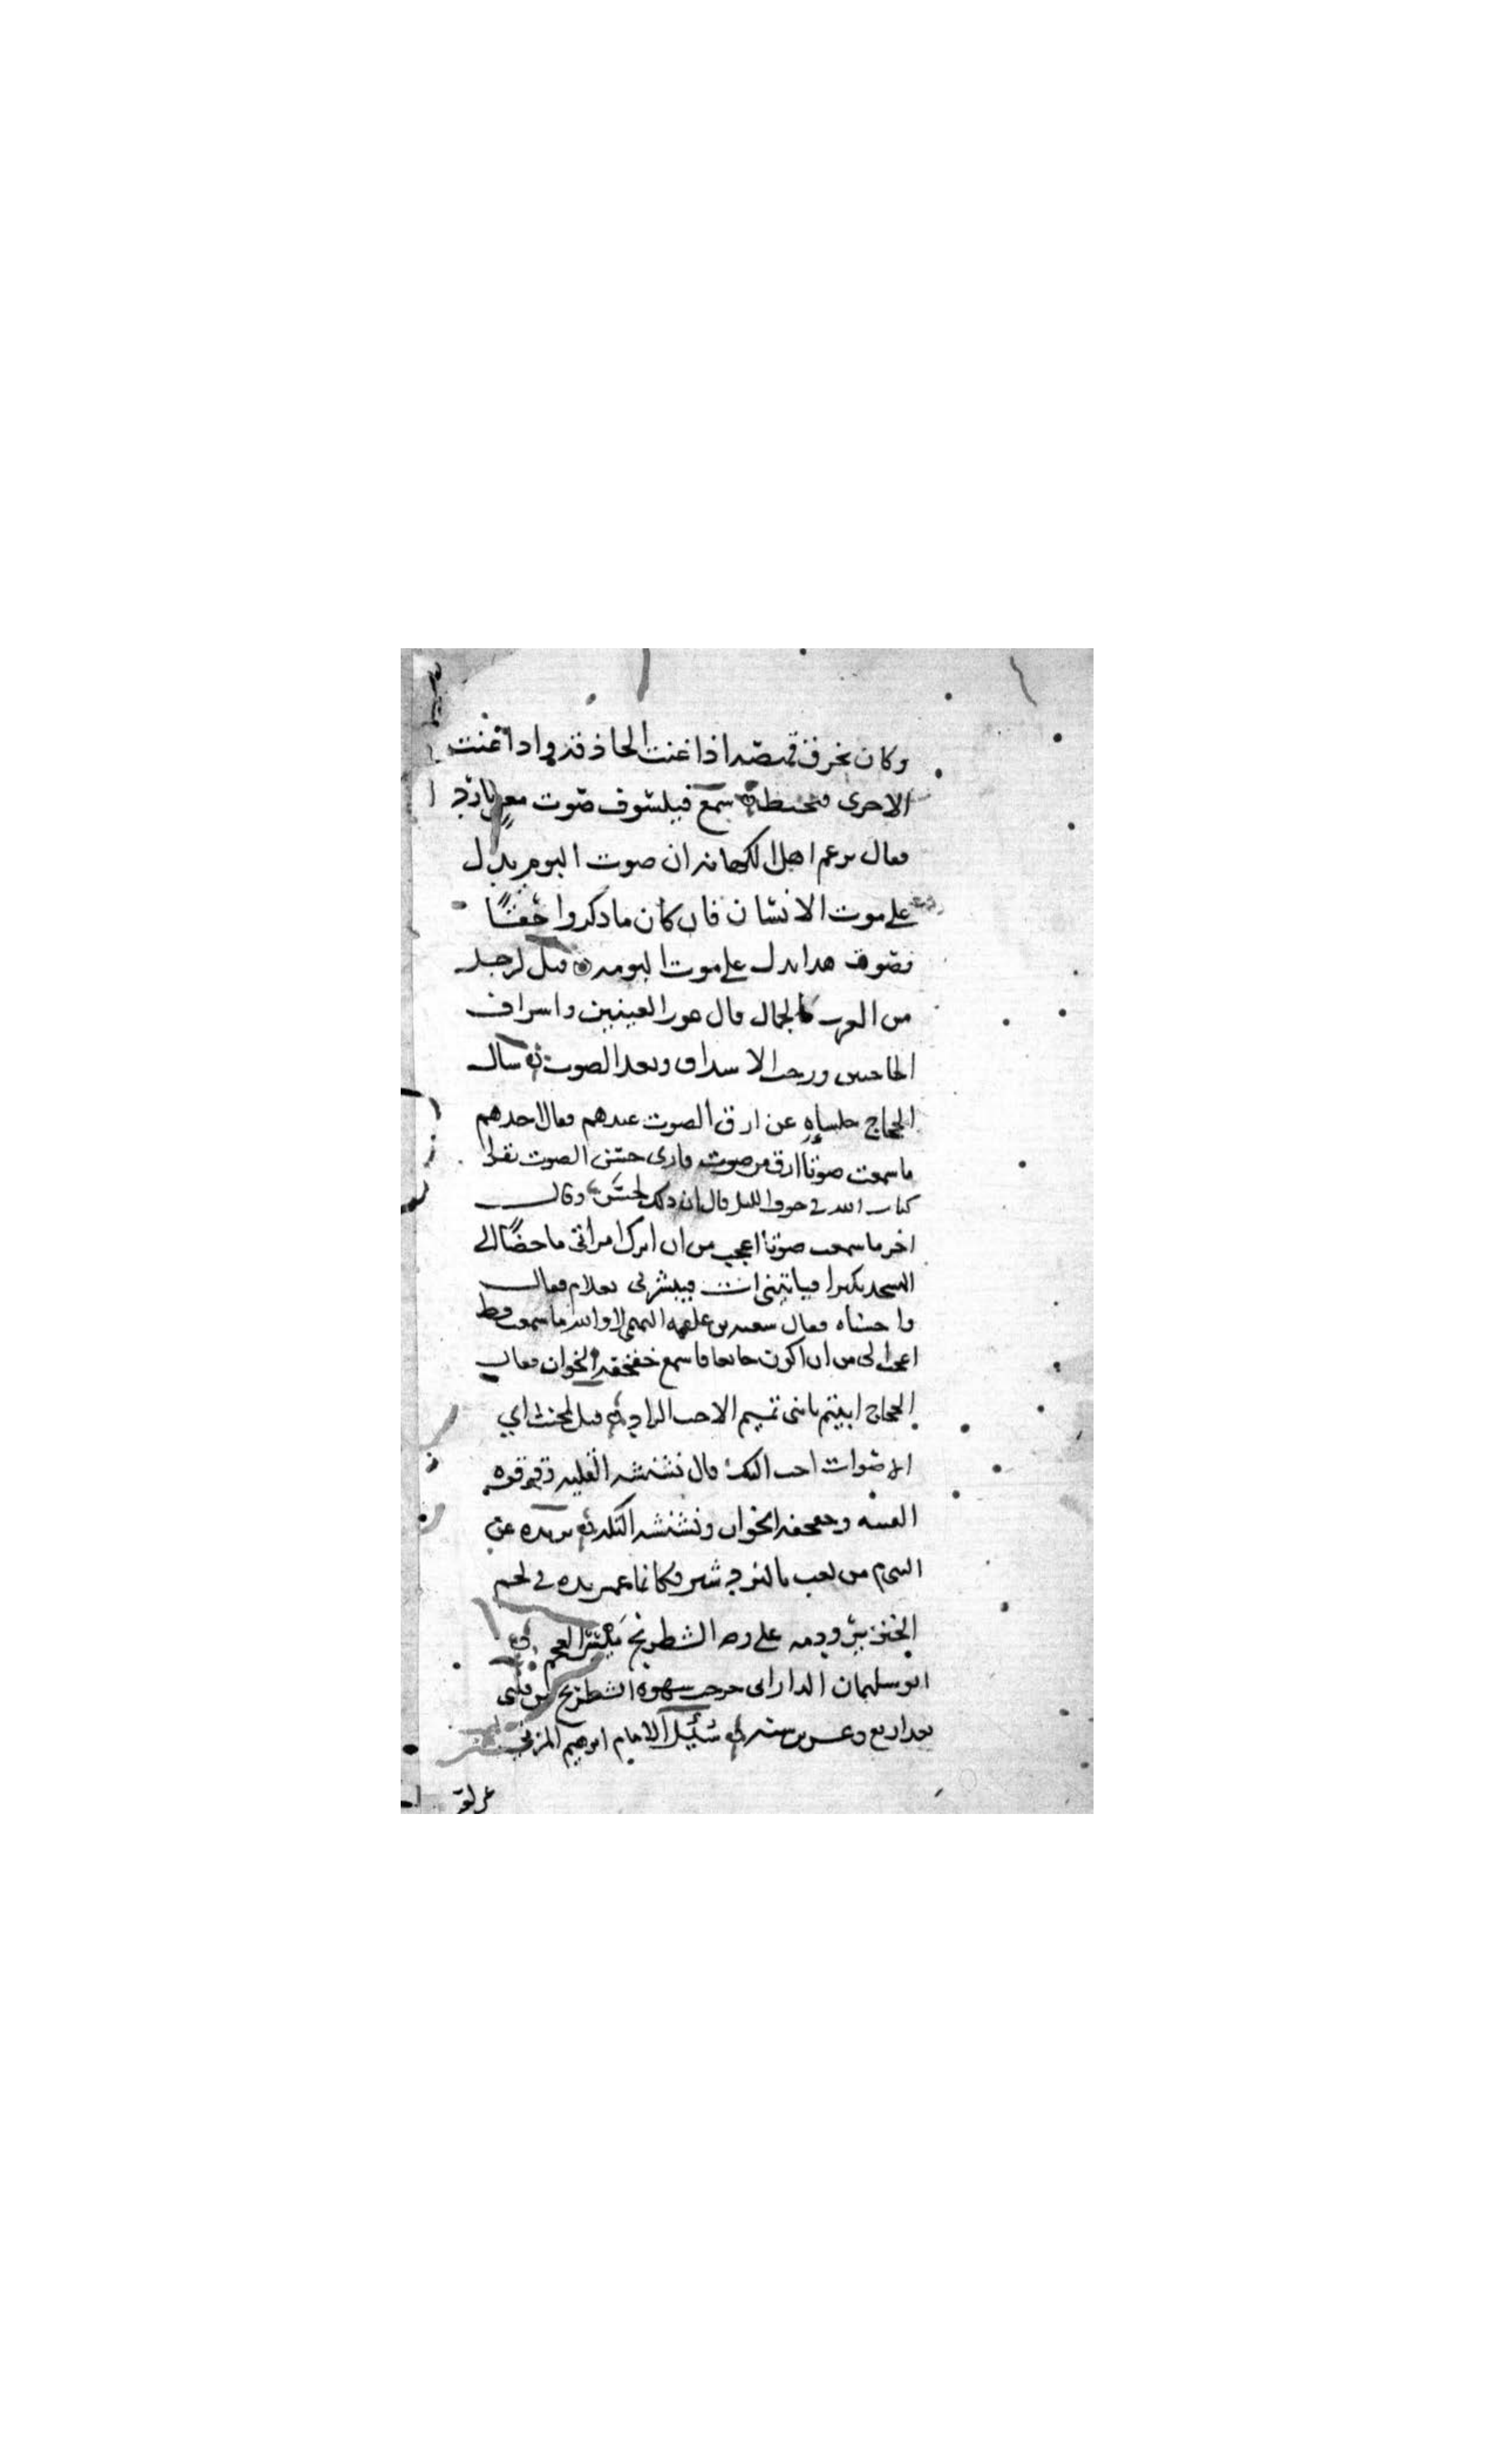 وكان يخرق قميصه اذا غنت الحاذقه واذا غنت
الاخرى فيخيطه سمع فيلسوف صوت مغن بارد
فقال يزعم اهل الكهانه ان صوت البوم يدل
على موت الانسان فان كان ما ذكروا حقا
فصوت هذا يدل على موت البومه قيل لرجل
من العرب ما الجمال قال غور العينين واشراف
الحاجبين ورحب الاشداق وبعد الصوت سال
الحجاج جلساءه عن ارق الصوت عندهم فقال احدهم
ما سمعت صوتا ارق من صوت قارى حسن الصوت يقرا
كتاب الله في جوف الليل قال ان ذلك لحسن وقال
اخر ما سمعت صوتا اعجب من ان اترك امراتي ماخضا الى
المسجد بكيرا فياتيني ات فيبشرني بغلام فقال
واحسناه فقال سعيد بن علقمه التميمي لا والله ما سمعت قط
اعجب الي من ان اكون جائعا فاسمع خفخفة الخوان فقال
الحجاج ابيتم يا بني تميم الا حب الزاد قيل لمخنث اي
الاصوات احب اليك قال نشنشه القليه وقرقره
القنينه وخفخفه الخوان ونشنشه التكه بريده عن
النبي م من لعب بالنردشير فكانما غمس يده في لحم
الخنزير ودمه على رضه الشطرنج ميسر العجم
ابو سليمان الداراني خرجت شهوه الشطرنج من قلبي
بعد اربع وعشرين سنه سئل الامام ابرهيم المزني
عن لعب